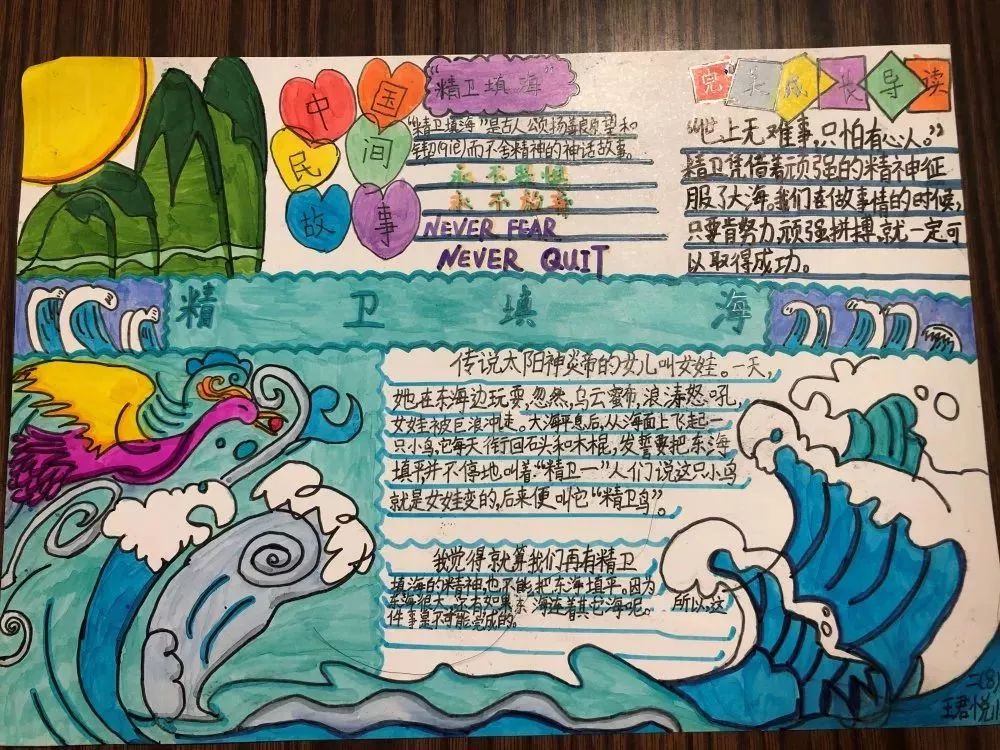 中国
民间
故事
"精卫填海"
"精卫填海"是古人颂扬善良愿望和
锲而不舍精神的神话故事。
永不畏惧
永不放弃
NEVER FEAR
NEVER QUIT
完美成长导读
"世上无难事,只怕有心人。"
精卫凭借着顽强的精神征
服了大海,我们在做事情的时候,
只要肯努力,顽强拼搏,就一定可
以取得成功。
精卫填海
传说太阳神炎帝的女儿叫女娃。一天,
她在东海边玩耍,忽然,乌云蜜布,浪涛怒吼,
女娃被巨浪冲走。大海平息后,从海面上飞起一
只小鸟,它每天衔回石头和木棍,发誓要把东海
填平,并不停地叫着"精卫一"人们说这只小鸟
就是女娃变的,后来便叫它"精卫鸟"。
我觉得就算我们再有精卫
填海的精神,也不能把东海填平。因为
东海很大,还有如果东海连着其它海呢。所以,这
件事是不可能完成的。
二(8)
王君悦